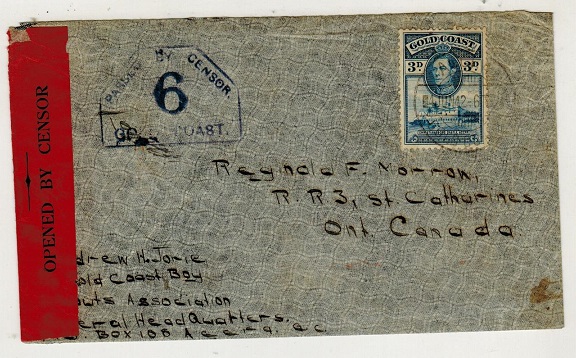 OPENED BY CENSOR
PASSED BY CENSOR.
6
COAST.
GOLD COAST
3D 3D
Reginald F. Morrow,
R.R3, St. Catharines
Ont. Canada.
drew H. Torie
old Coast Boy
outs Association
eral HeadQuatters.
BOX 108 Accra, G.C.